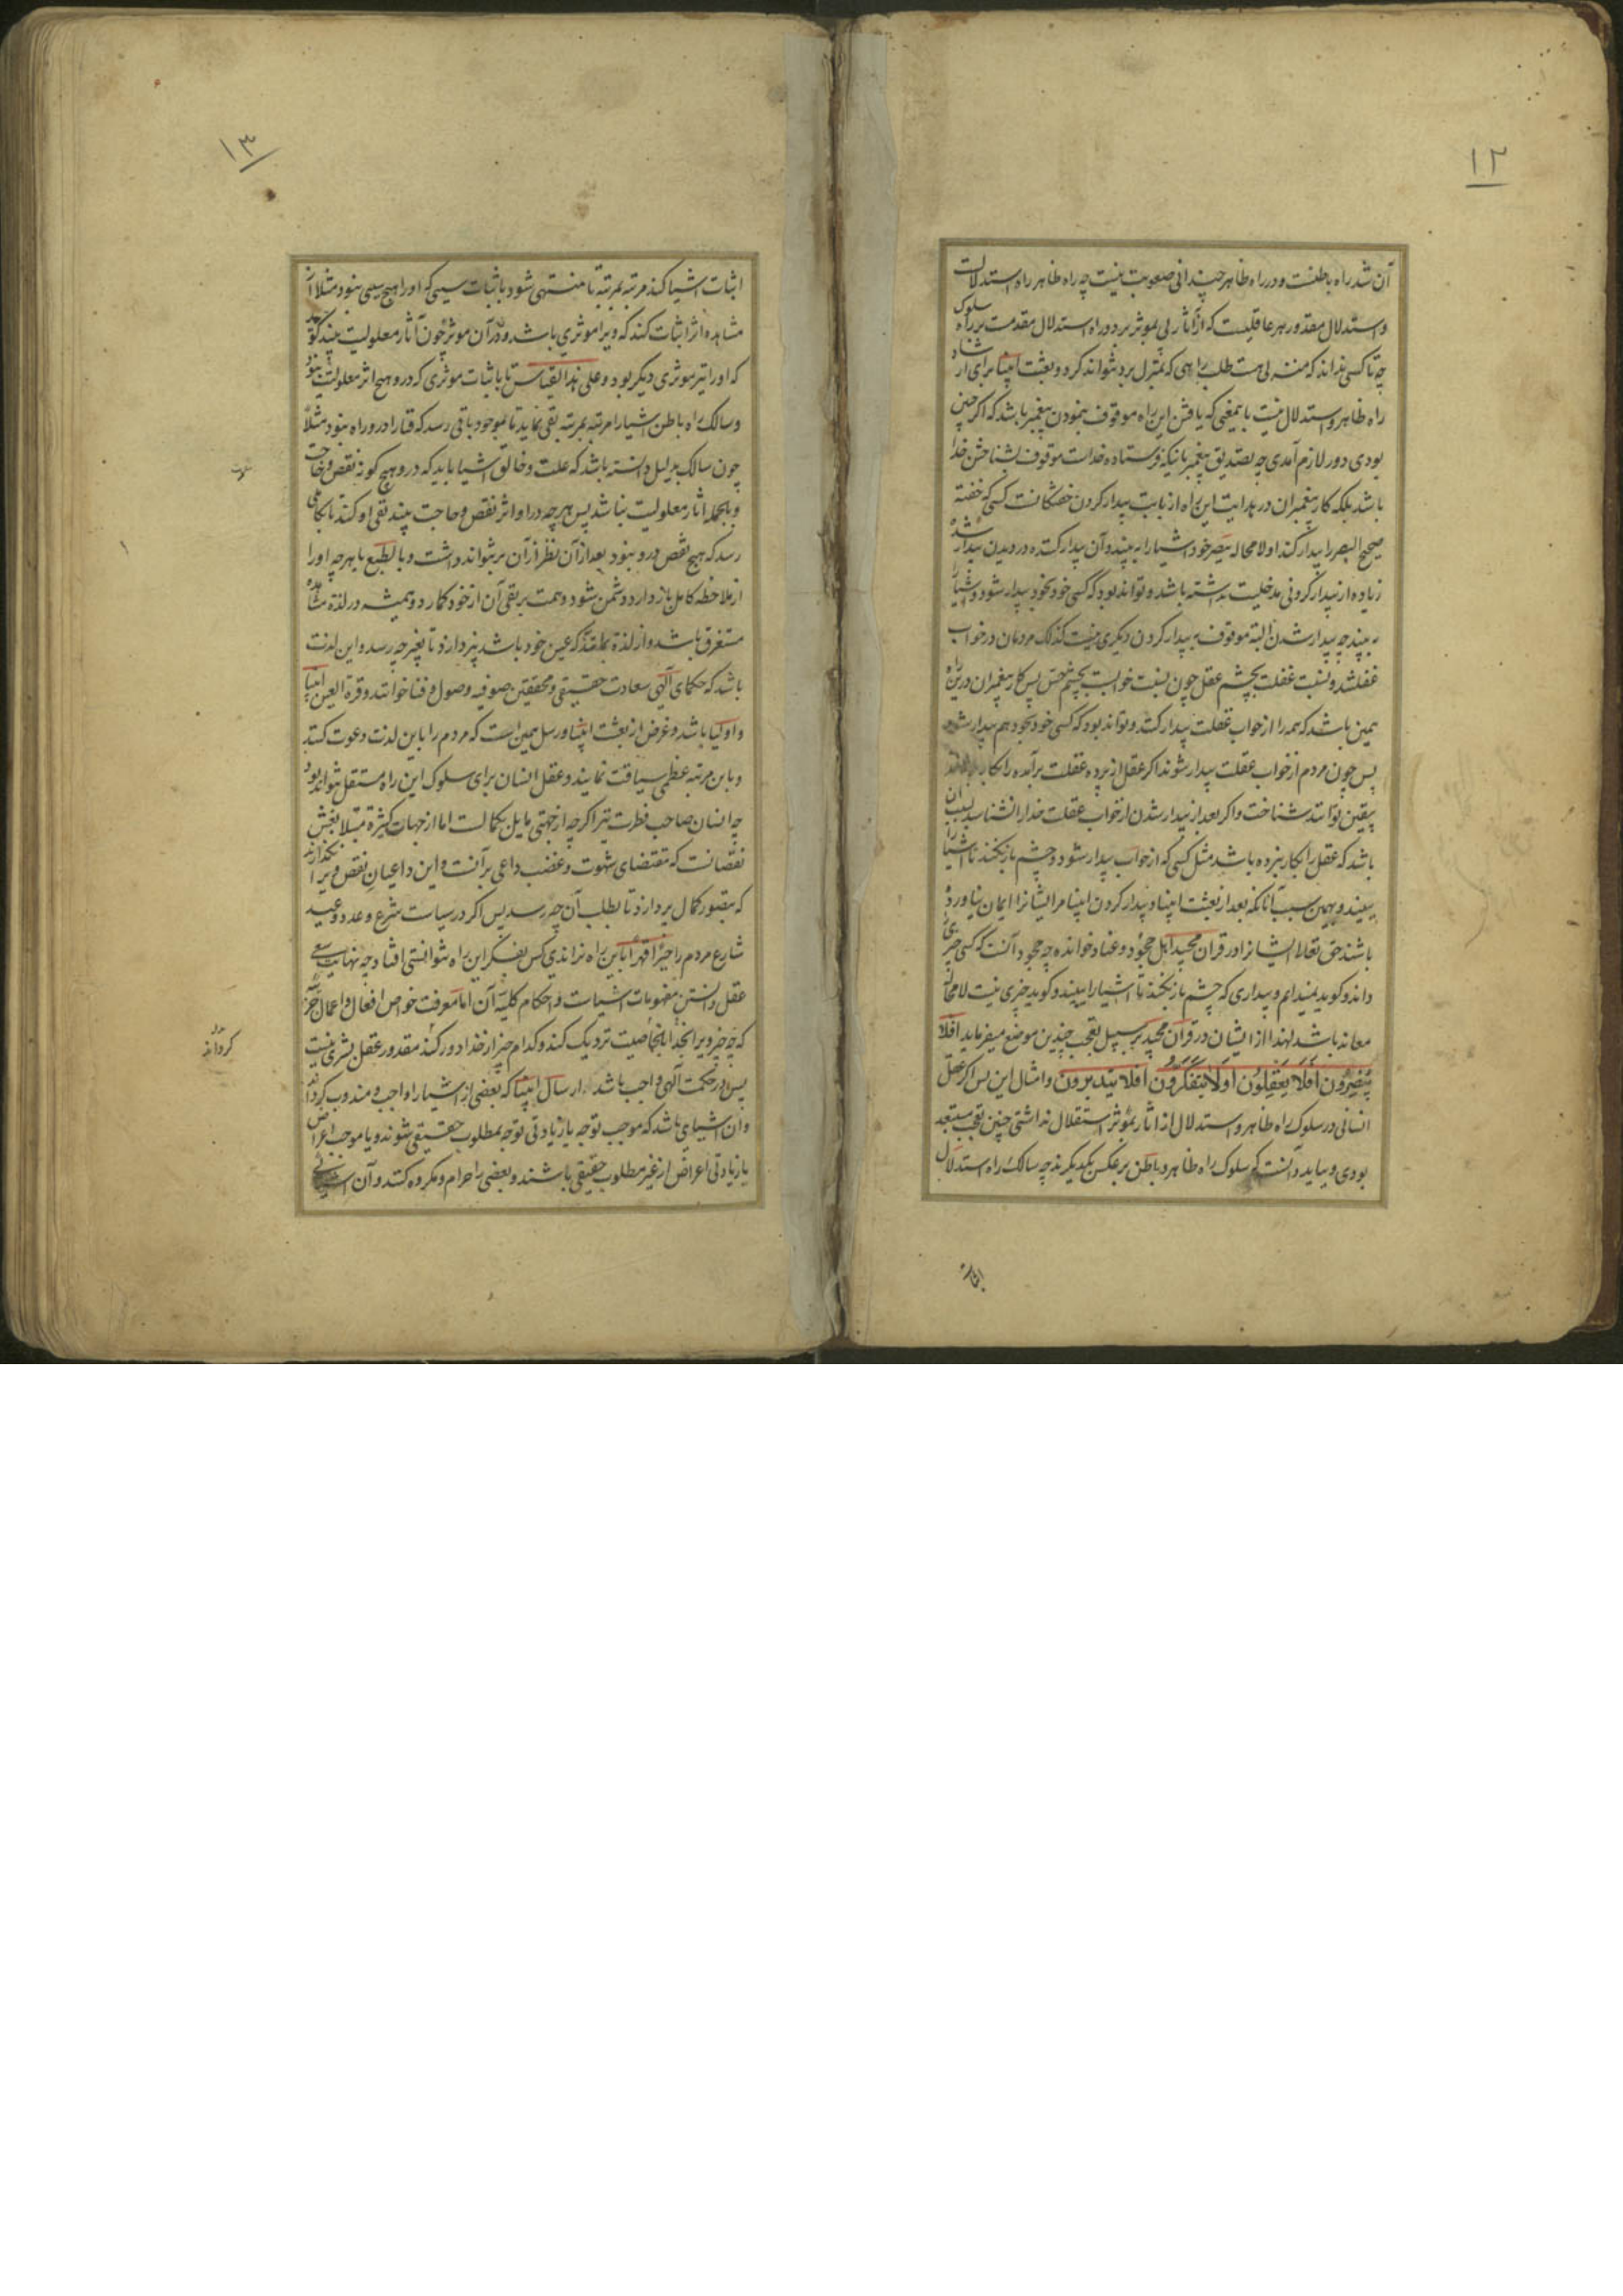 ۱۲
آن شد راه باطنست و در راه ظاهر چندانی صعوبت نیست چه راه ظاهر راه استدلالست
و استدلال مقدور هر عاقلیست که از آثار پی بموثر برد و راه استدلال مقدمست بر راه سلوک
چه تا کسی نداند که منزلی هست طلب راهی که بمنزل برد نتواند کرد و بعثت انبیا برای ارشاد
راه ظاهر و استدلال نیست باینمعنی که یافتن این راه موقوف بنمودن پیغمبر باشد که اگر چنین
بودی دور لازم آمدی چه تصدیق پیغمبر بانیکه فرستاده خداست موقوف بشناختن خدا
باشد بلکه کار پیغمبران در هدایت این راه از بابت بیدار کردن خفتگانست کسی که خفته
صحیح البصر را بیدار کند او لا محاله ببصر خود اشیا را به بیند و آن بیدار کننده در دیدن بیدار شده
زیاده از بیدار کردنی مدخلیت نداشته باشد و تواند بود که کسی خود بخود بیدار شود و اشیا را
به بیند چه بیدار شدن البته موقوف به بیدار کردن دیگری نیست کذلک مردمان در خواب
غفلتند و نسبت غفلت بچشم عقل چون نسبت خوابست بچشم حس پس کار پیغمبران درین راه
همین باشد که همه را از خواب غفلت بیدار کنند و تواند بود که کسی خود بخود هم بیدار شود
پس چون مردم از خواب غفلت بیدار شوند اگر عقل از پرده غفلت برآمده را بکار
بیقین توانند شناخت و اگر بعد از بیدار شدن از خواب غفلت خدا را نشناسند بسبب آن
باشد که عقل را بکار نبرده باشد مثل کسی که از خواب بیدار شود و چشم باز نکند تا اشیا را
ببیند و بهمین سبب آنانکه بعد از بعثت انبیا و بیدار کردن انبیا مر ایشانرا ایمان نیاورده
باشند حق تعالی ایشانرا در قرآن مجید اهل جحود و عناد خوانده چه جحود آنست که کسی چیزی
داند و گوید نمیدانم و بیداری که چشم باز نکند تا اشیا را ببیند و گوید چیزی نیست لا محاله
معاند باشد لهذا از ایشان در قرآن مجید بر سبیل تعجب چندین موضع میفرماید افلا
یبصرون افلا یعقلون اولا یتفکرون افلا یتدبرون و امثال این پس اگر عقل
انسانی در سلوک راه ظاهر و استدلال از آثار بموثر استقلال نداشتی چنین تعجب مستبعد
بودی و بباید دانست که سلوک راه ظاهر و باطن بر عکس یکدیگرند چه سالک راه استدلال
اثبات
۱۳
اثبات اشیا کند مرتبه بمرتبه تا منتهی شود باثبات سببی که او را هیچ سببی نبود مثلا از
مشاهده اثر اثبات کند که ویرا موثری باشد و در آن موثر چون آثار معلولیت بیند گوید
که او را نیز موثری دیگر بود و علی هذا القیاس تا باثبات موثری که در و هیچ اثر معلولیت نبود
و سالک راه باطن اشیا را مرتبه بمرتبه نفی نماید تا بموجود باقی رسد که فنا را در و راه نبود مثلا
چون سالک بدلیل دانسته باشد که علت و خالق اشیا باید که در و هیچ گونه نقص و حاجت
و بالجمله آثار معلولیت نباشد پس هر چه در او اثر نقص و حاجت بیند نفی او کند تا بکاملی
رسد که هیچ نقص در و نبود بعد از آن نظر از آن بر نتواند داشت و بالطبع با هر چه او را
از ملاحظه کامل باز دارد دشمن شود و همت بر نفی آن از خود گمارد و همیشه در لذة مشاهده
مستغرق باشد و از لذة بملتذ که عین خود باشد نپردازد تا بغیر چه رسد و این لذت
باشد که حکمای الهی سعادت حقیقی و محققین صوفیه وصول و فنا خوانند و قرة العین انبیا
و اولیا باشد و غرض از بعثت انبیا و رسل همین است که مردم را باین لذت دعوت کنند
و باین مرتبه عظمی سیاقت نمایند و عقل انسان برای سلوک این راه مستقل نتواند بود
چه انسان صاحب فطرت نیز اگر چه از جهتی مایل بکمالست اما از جهات کثیره مبتلا بغش
نقصانست که مقتضای شهوت و غضب داعی بر آنست و این داعیان نقص ویرا نگذارند
که بتصور کمال پردازد تا بطلب آن چه رسد پس اگر در سیاست شرع و وعد و وعید
شارع مردم را جبرا قهرا باین راه نراندی کس بفکر این راه نتوانستی افتاد چه نهایت سعی
عقل دانستن مفهومات اشیاست و احکام کلیه آن اما معرفت خواص افعال و اعمال جزئیه
که چه چیز ویرا بخدا بالخاصیت نزدیک کند و کدام چیز از خدا دور کند مقدور عقل بشری نیست
پس در حکمت الهی واجب باشد ارسال انبیا که بعضی از اشیا را واجب و مندوب گردانند
و آن اشیائی باشد که موجب توجه یا زیادتی توجه بمطلوب حقیقی شوند و یا موجب اعراض
یا زیادتی اعراض از غیر مطلوب حقیقی باشند و بعضی را حرام و مکروه کنند و آن
گردانند